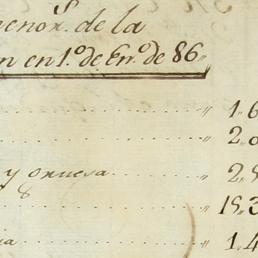 menor.ˢ de la
n en 1.º de En.º de 86
1.6
2.0
y gruesa 2.8
18.3
ia 1.4